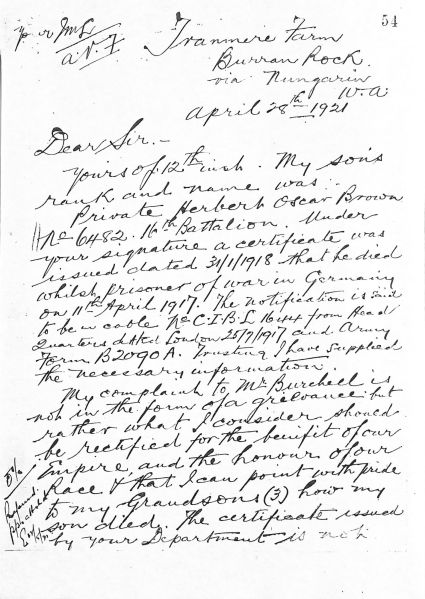 54
Tranmere Farm
Burran Rock
via Nungarin
W.A.
April 28th 1921
Dear Sir.-
Yours of 12th inst. My son's
rank and name was:-
Private Herbert Oscar Brown
No 6482. 16th Battalion. Under
your signature a certificate was
issued dated 31/1/1918 that he died
whilst prisoner of war in Germany
on 11th April 1917. The notification is said
to be in cable No C.I.B.L 1644 from Head
Quarters dated London 25/7/1917 and Army
Form B2090A. Trusting I have supplied
the necessary information.
My complaint to Mr Burchell is
not in the form of a grievance but
rather what I consider should
be rectified for the benifit of our
Empire, and the honour of our
Race & that I can point with pride
to my Grandsons (3) how my
son died. The certificate issued
by your Department is not